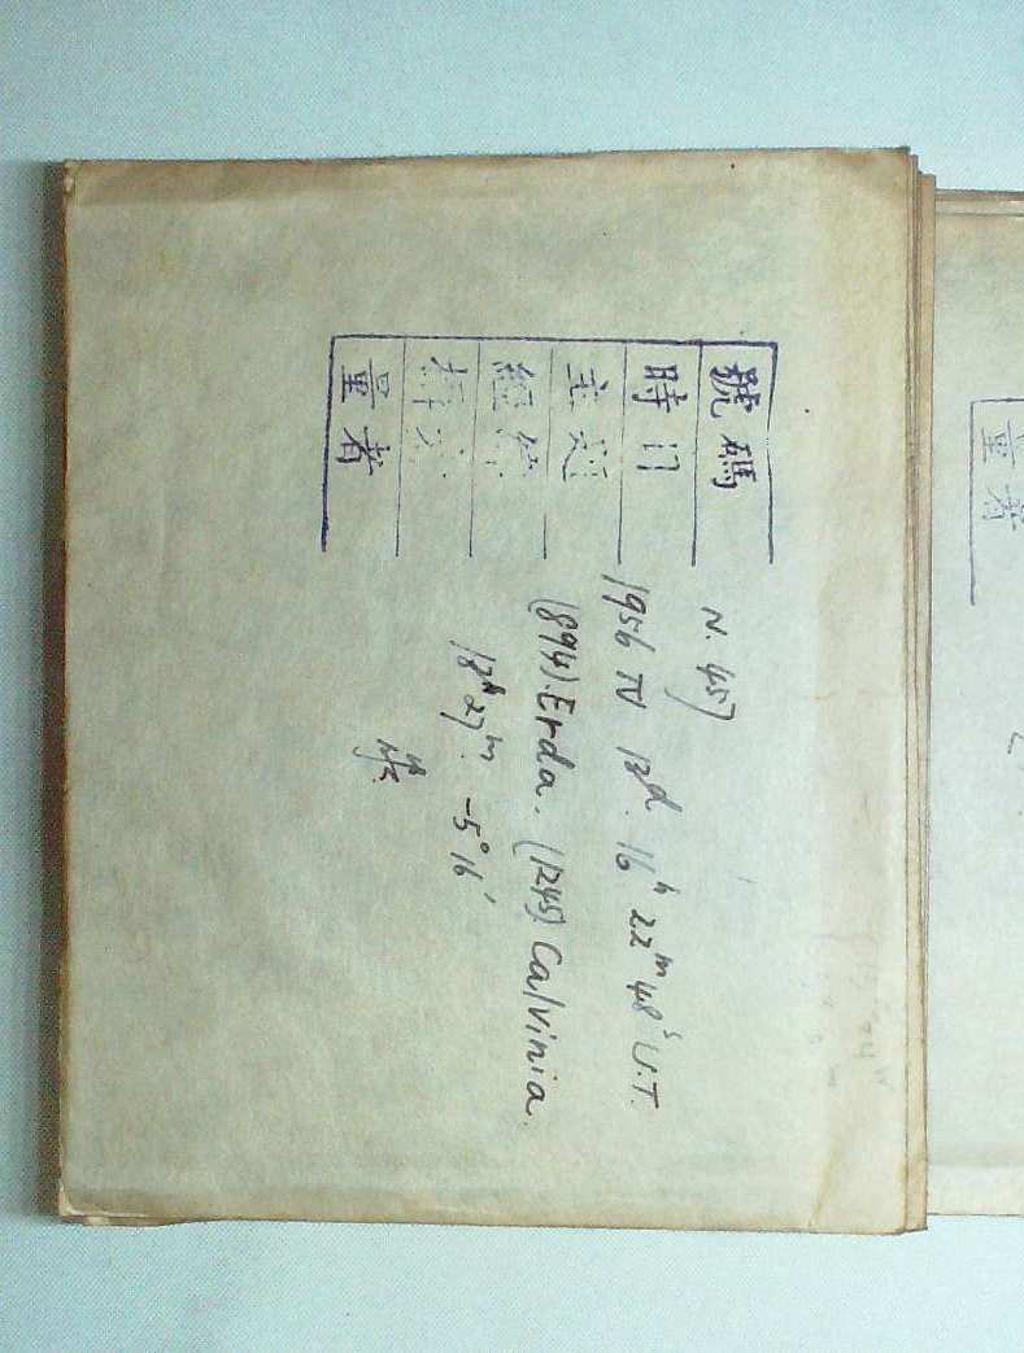 號碼 N. 457
時刻 1956 IV 13d. 16h 22m 48s U.T.
主题 (894).Erda. (1245) Calvinia.
經緯 13h 27m. -5° 16′
量者
量者